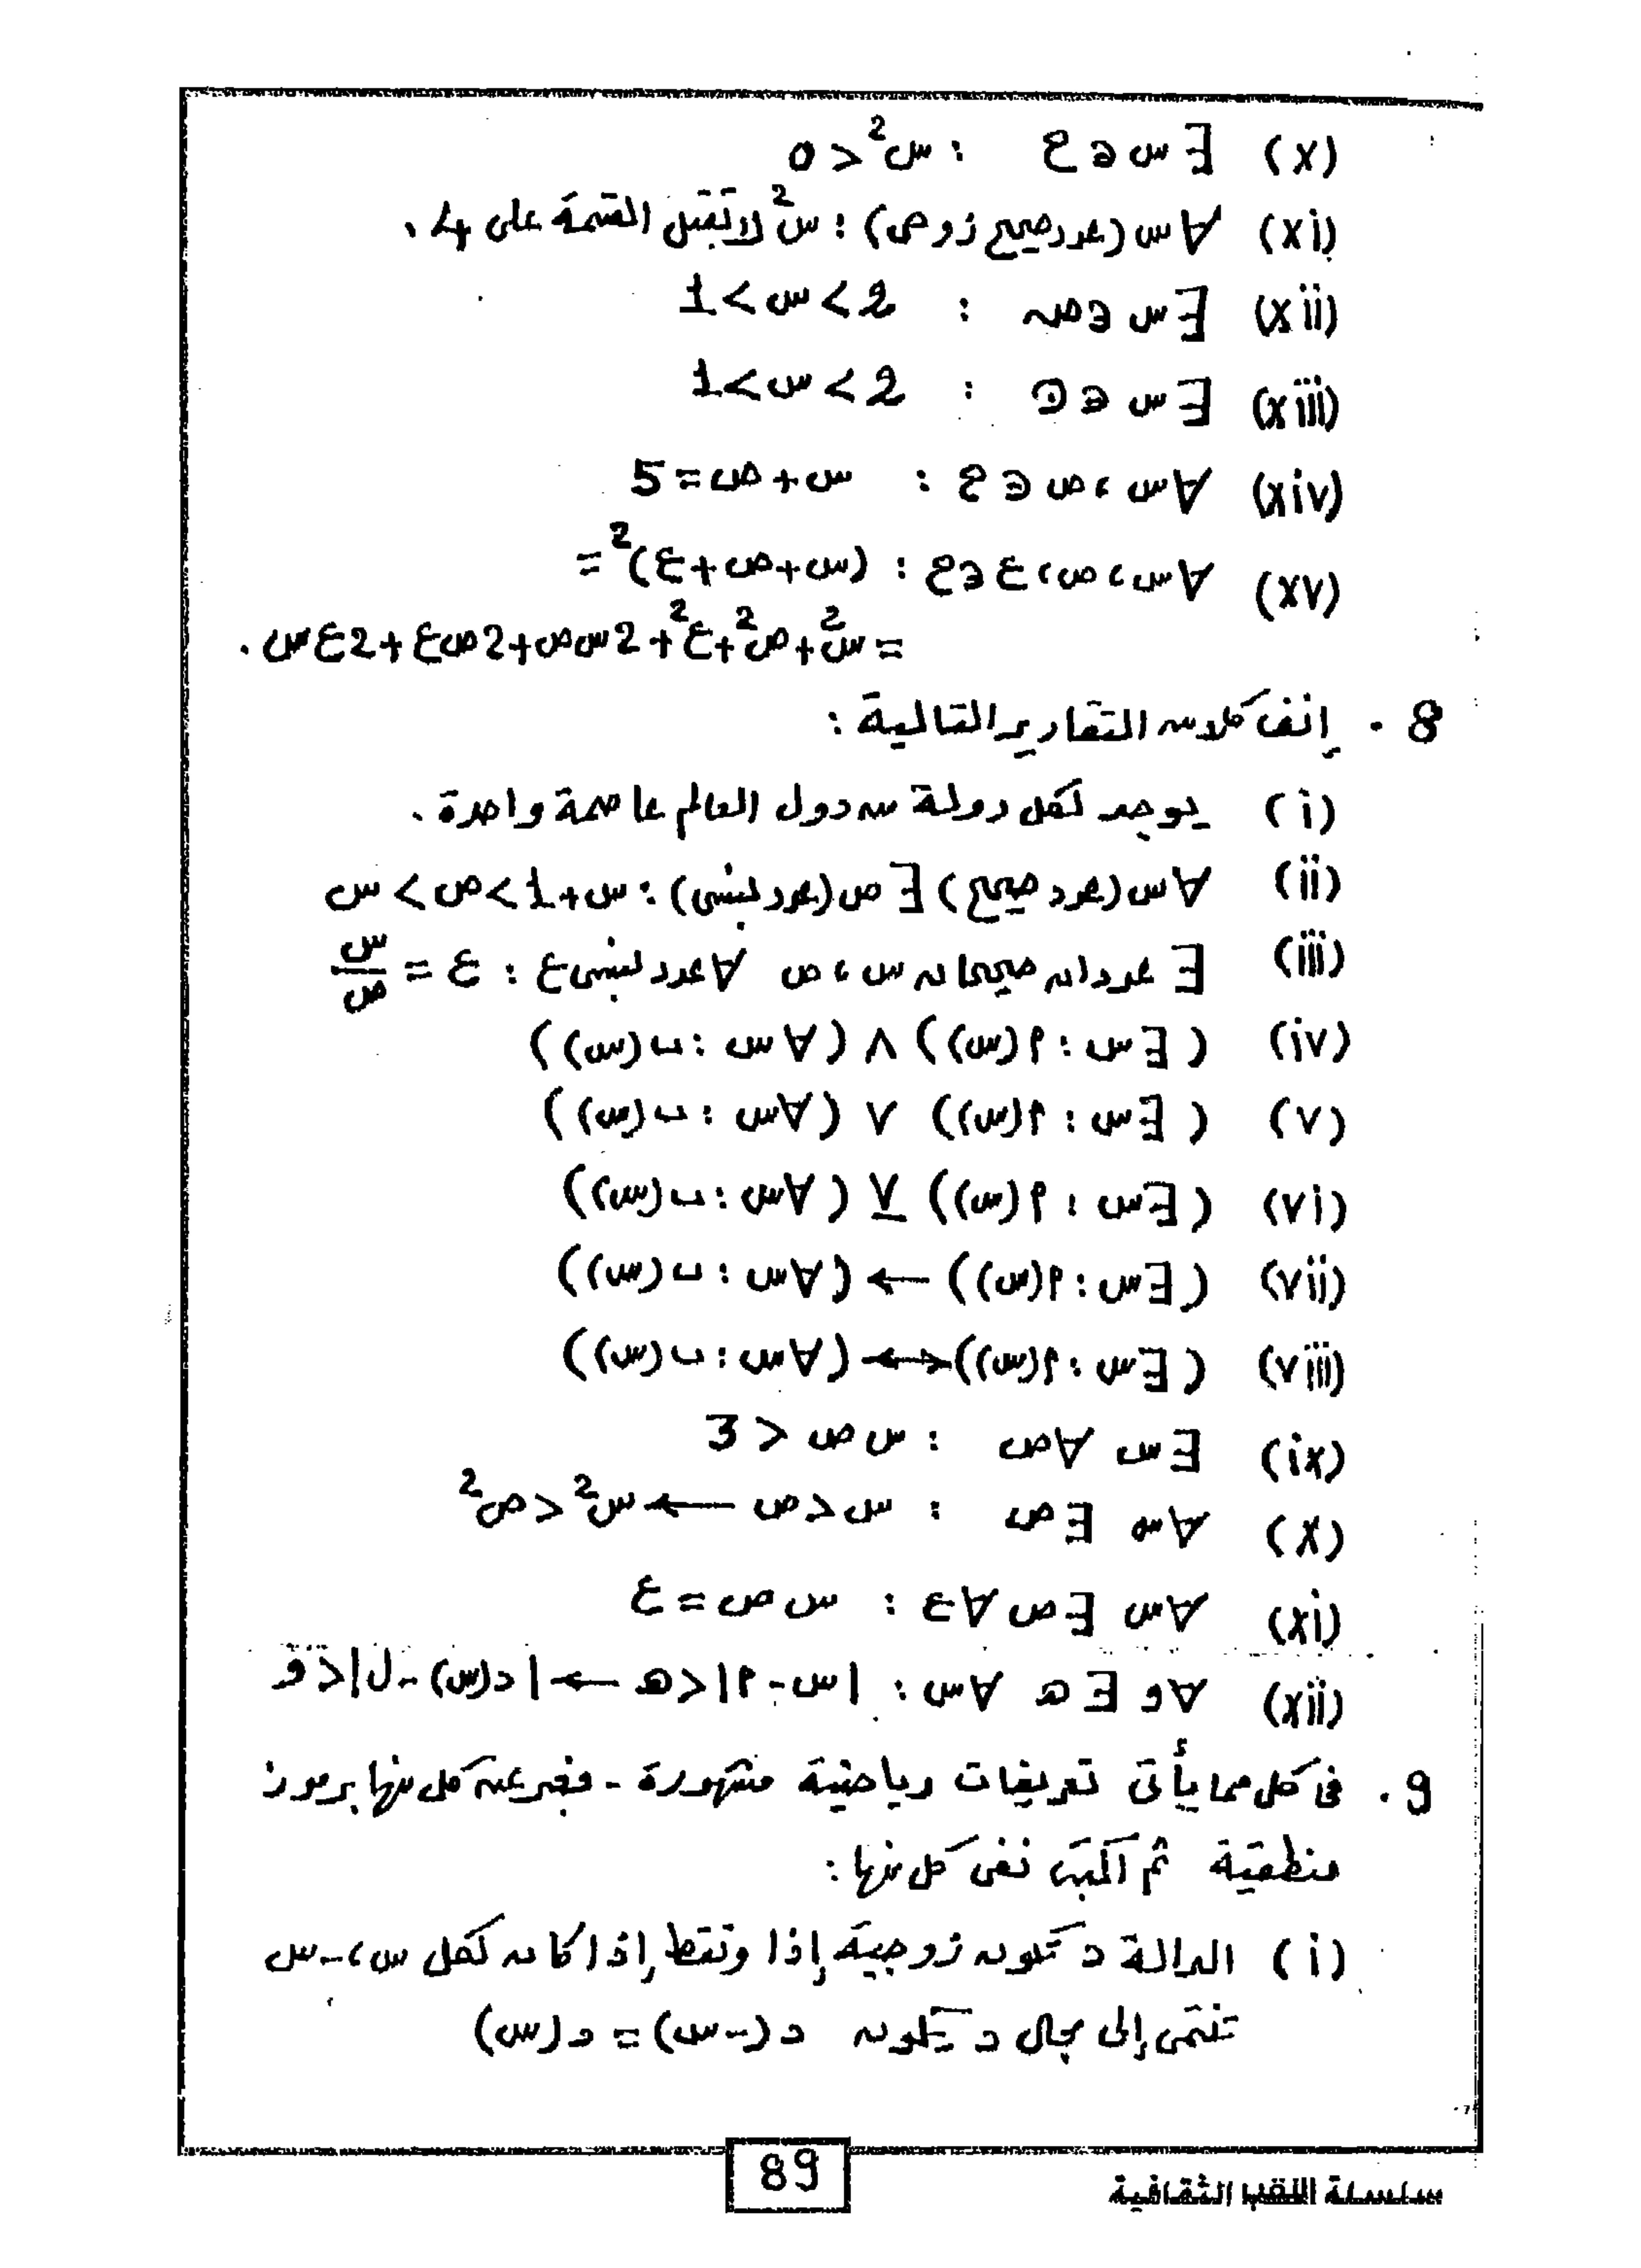 (x) ∃ س ∈ ح : س² < 0
(xi) ∀ س (عدد صحيح زوجي) : س² لا تقبل القسمة على 4 .
(xii) ∃ س ∈ ص : 2 > س > 1
(xiii) ∃ س ∈ ن : 2 > س > 1
(xiv) ∀ س ، ص ∈ ح : س + ص = 5
(xv) ∀ س ، ص ، ع ∈ ح : (س + ص + ع)² =
= س² + ص² + ع² + 2 س ص + 2 ص ع + 2 ع س .
8 . إنف كلا من التقارير التالية :
(i) يوجد لكل دولة من دول العالم عاصمة واحدة .
(ii) ∀ س (عدد صحيح) ∃ ص (عدد نسبي) : س + 1 > ص > س
(iii) ∃ عددان صحيحان س ، ص ∀ عدد نسبي ع : ع = س/ص
(iv) ( ∃ س : ا(س)) ∧ ( ∀ س : ب(س))
(v) ( ∃ س : ا(س)) ∨ ( ∀ س : ب(س))
(vi) ( ∃ س : ا(س)) ⊻ ( ∀ س : ب(س))
(vii) ( ∃ س : ا(س)) ← ( ∀ س : ب(س))
(viii) ( ∃ س : ا(س)) ↔ ( ∀ س : ب(س))
(ix) ∃ س ∀ ص : س ص < 3
(x) ∀ س ∃ ص : س < ص ← س² < ص²
(xi) ∀ س ∃ ص ∀ ع : س ص = ع
(xii) ∀ و ∃ ه ∀ س : | س - ا | < ه ← | د(س) - ل | < و
9 . في كل مما يأتي تعريفات رياضية مشهورة - فعبر عن كل منها برموز
منطقية ثم اكتب نفي كل منها :
(i) الدالة د تكون زوجية إذا وفقط إذا كان لكل س ، -س
تنتمي إلى مجال د يكون د (-س) = د (س)
89
سلسلة النقب الثقافية